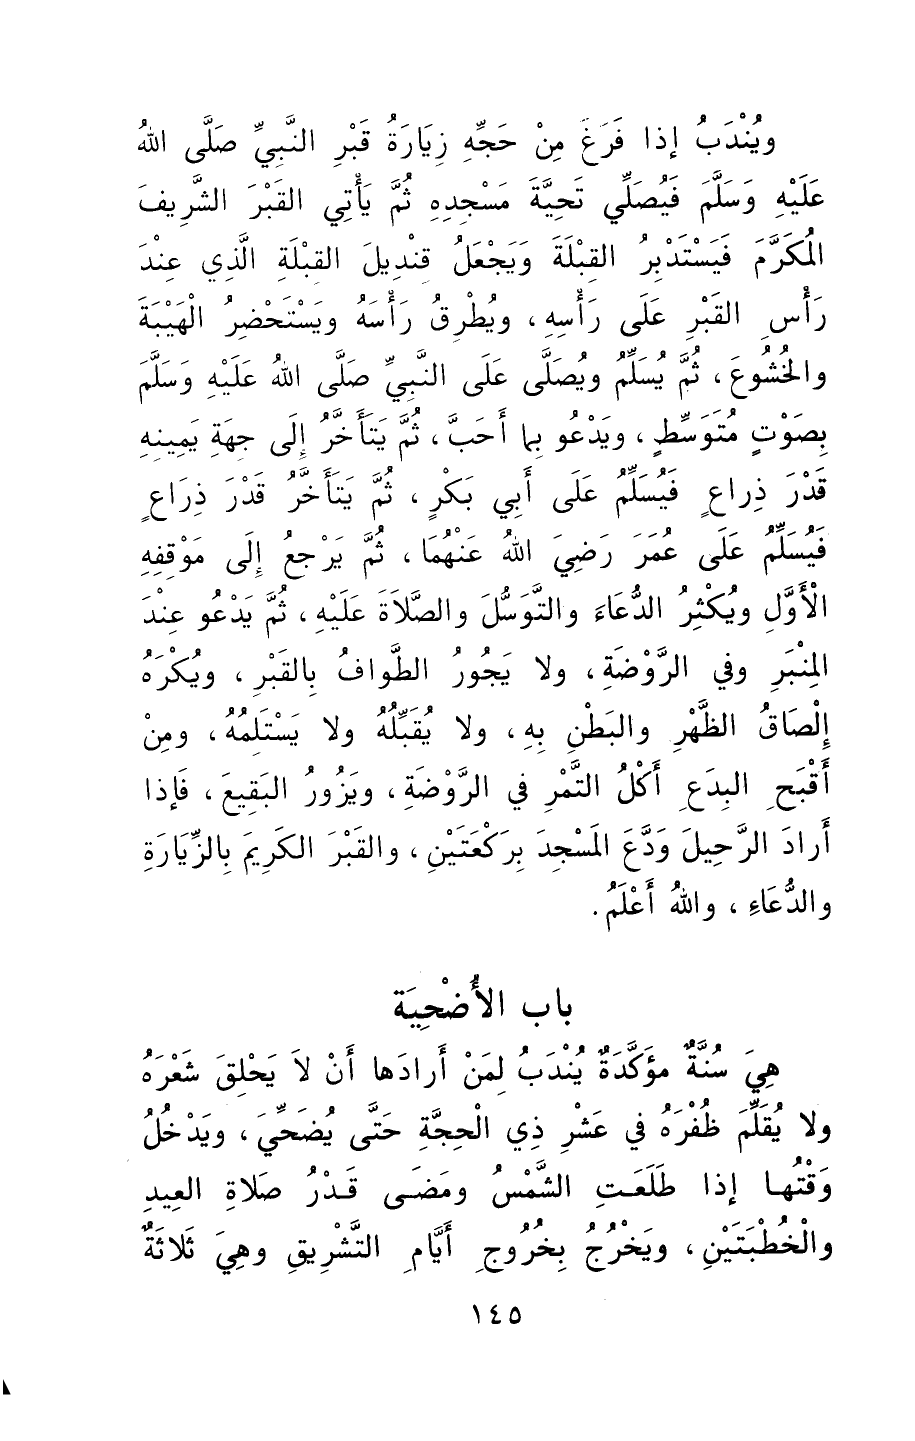 ويُنْدَبُ إذا فَرَغَ مِنْ حَجِّهِ زِيَارَةُ قَبْرِ النَّبِيِّ صَلَّى اللهُ
عَلَيْهِ وَسَلَّمَ فَيُصَلِّي تَحِيَّةَ مَسْجِدِهِ ثُمَّ يَأْتِي القَبْرَ الشَّرِيفَ
المُكَرَّمَ فَيَسْتَدْبِرُ القِبْلَةَ وَيَجْعَلُ قنْدِيلَ القبْلَةِ الَّذِي عِنْدَ
رَأْسِ القَبْرِ عَلَى رَأْسِهِ، ويُطْرِقُ رَأْسَهُ ويَسْتَحْضِرُ الْهَيْبَةَ
والخُشُوعَ، ثُمَّ يُسَلِّمُ ويُصَلَّى عَلَى النَّبِيِّ صَلَّى اللهُ عَلَيْهِ وَسَلَّمَ
بِصَوْتٍ مُتَوَسِّطٍ، ويَدْعُو بِما أَحَبَّ، ثُمَّ يَتَأَخَّرُ إِلَى جِهَةِ يَمِينِهِ
قَدْرَ ذِراعٍ فَيُسَلِّمُ عَلَى أَبِي بَكْرٍ، ثُمَّ يَتَأَخَّرُ قَدْرَ ذِرَاعٍ
فَيُسَلِّمُ عَلَى عُمَرَ رَضِيَ اللهُ عَنْهُمَا، ثُمَّ يَرْجعُ إِلَى مَوْقفِهِ
الْأَوَّلِ ويُكْثِرُ الدُّعَاءَ والتَّوَسُّلَ والصَّلَاةَ عَلَيْهِ، ثُمَّ يَدْعُو عِنْدَ
المِنْبَرِ وفي الرَّوْضَةِ، ولا يَجُورُ الطَّوافُ بِالقَبْرِ، ويُكْرَهُ
إِلْصَاقُ الظَّهْرِ والبَطْنِ بِهِ، ولا يُقَبِّلُهُ ولا يَسْتَلِمُهُ، ومِنْ
أَقْبَحِ البِدَعِ أَكْلُ التَّمْرِ في الرَّوْضَةِ، ويَزُورُ البَقِيعَ، فَإذا
أَرادَ الرَّحِيلَ وَدَّعَ المَسْجِدَ بِرَكْعَتَيْنِ، والقَبْرَ الكَرِيمَ بِالزِّيَارَةِ
والدُّعَاءِ، واللهُ أَعْلَمُ.
باب الأُضْحِيَة
هِيَ سُنَّةٌ مؤَكَّدَةٌ يُنْدَبُ لِمَنْ أَرادَها أَنْ لاَ يَحْلِقَ شَعْرَهُ
ولا يُقَلِّمَ ظُفْرَهُ في عَشْرِ ذِي الْحِجَّةِ حَتَّى يُضَحِّيَ، ويَدْخُلُ
وَقْتُها إذا طَلَعَتِ الشَّمْسُ ومَضَى قَدْرُ صَلاةِ العِيدِ
والْخُطْبَتَيْنِ، ويَخْرُجُ بِخُرُوجِ أَيَّامِ التَّشْرِيقِ وهِيَ ثَلاثَةٌ
١٤٥